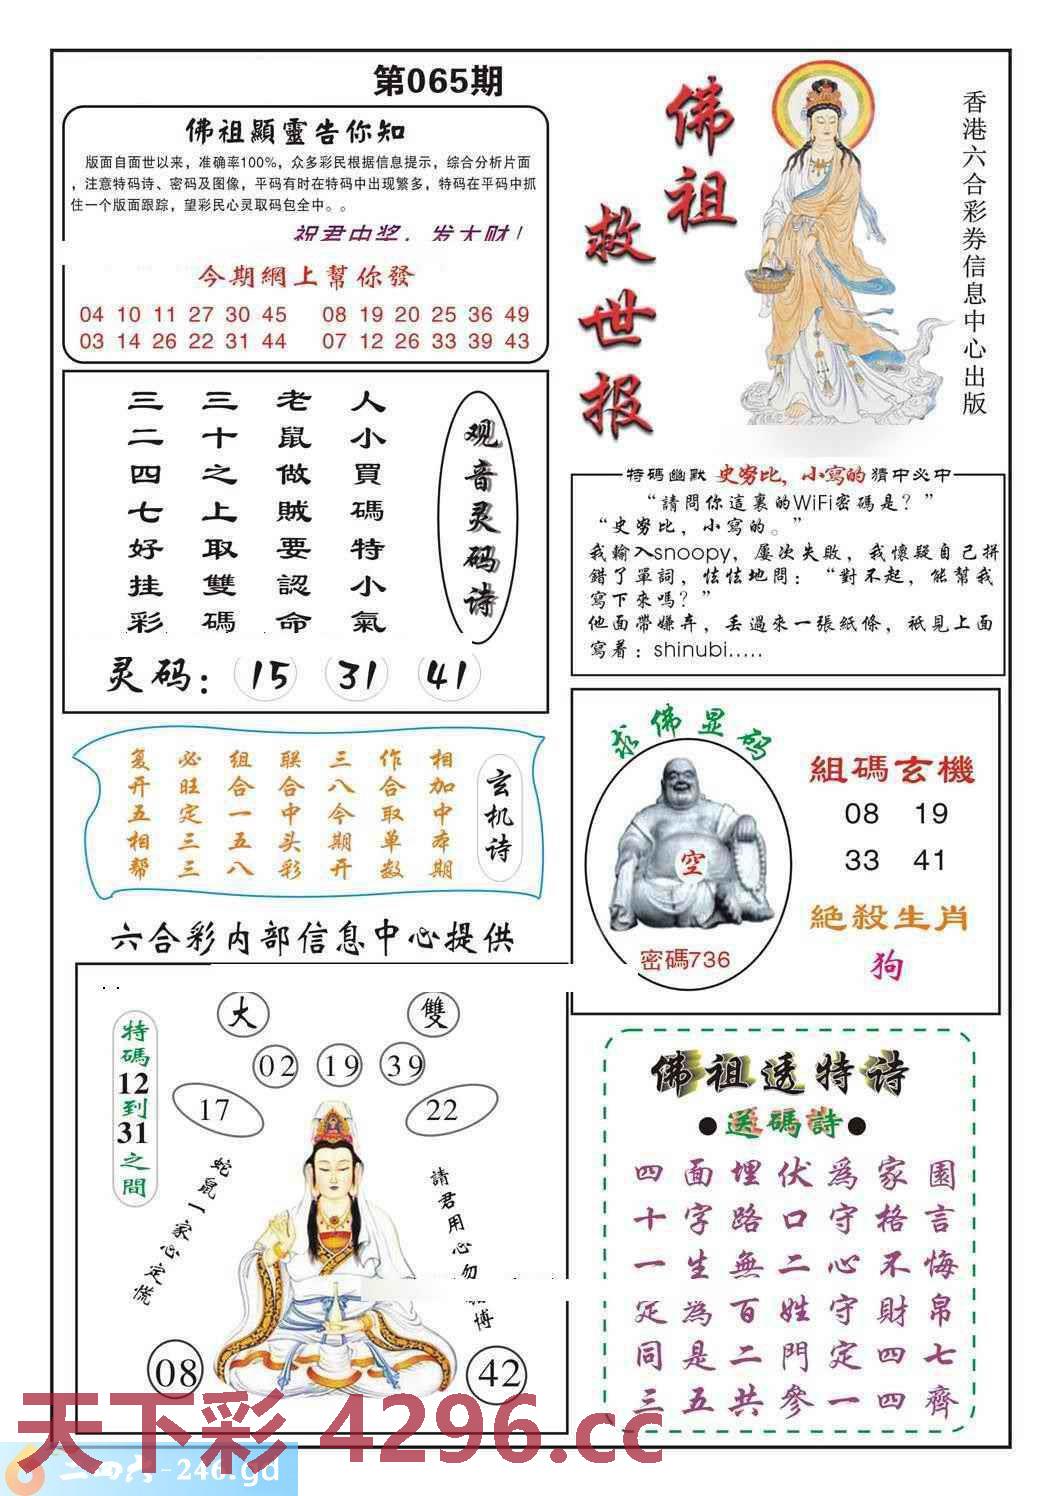 第065期
佛祖顯靈告你知
版面自面世以来，准确率100%，众多彩民根据信息提示，综合分析片面
，注意特码诗、密码及图像，平码有时在特码中出现繁多，特码在平码中抓
住一个版面跟踪，望彩民心灵取码包全中。。
祝君中奖，发大财！
今期網上幫你發
04 10 11 27 30 45 08 19 20 25 36 49
03 14 26 22 31 44 07 12 26 33 39 43
佛祖
救世报
香港六合彩券信息中心出版
观音灵码诗
人小買碼特小氣
老鼠做賊要認命
三十之上取雙碼
三二四七好挂彩
灵码：15 31 41
特碼幽默 史努比，小寫的 猜中必中
“請問你這裏的WiFi密碼是？”
“史努比，小寫的。”
我輸入snoopy，屢次失敗，我懷疑自己拼
錯了單詞，怯怯地問：“對不起，能幫我
寫下來嗎？”
他面帶嫌弃，丢過來一張紙條，衹見上面
寫着：shinubi.....
玄机诗
相加中本期
作合取单数
三八今期开
联合中头彩
组合一五八
必旺定三三
复开五相帮
求佛显码
空
密碼736
組碼玄機
08 19
33 41
絕殺生肖
狗
六合彩内部信息中心提供
特碼12到31之間
大 雙
02 19 39
17 22
蛇鼠一家心定慌
請君用心勿
博
08 42
佛祖透特诗
●送碼詩●
四面埋伏爲家園
十字路口守格言
一生無二心不悔
定為百姓守財帛
同是二門定四七
三五共參一四齊
天下彩 4296.cc
二四六-246.gd